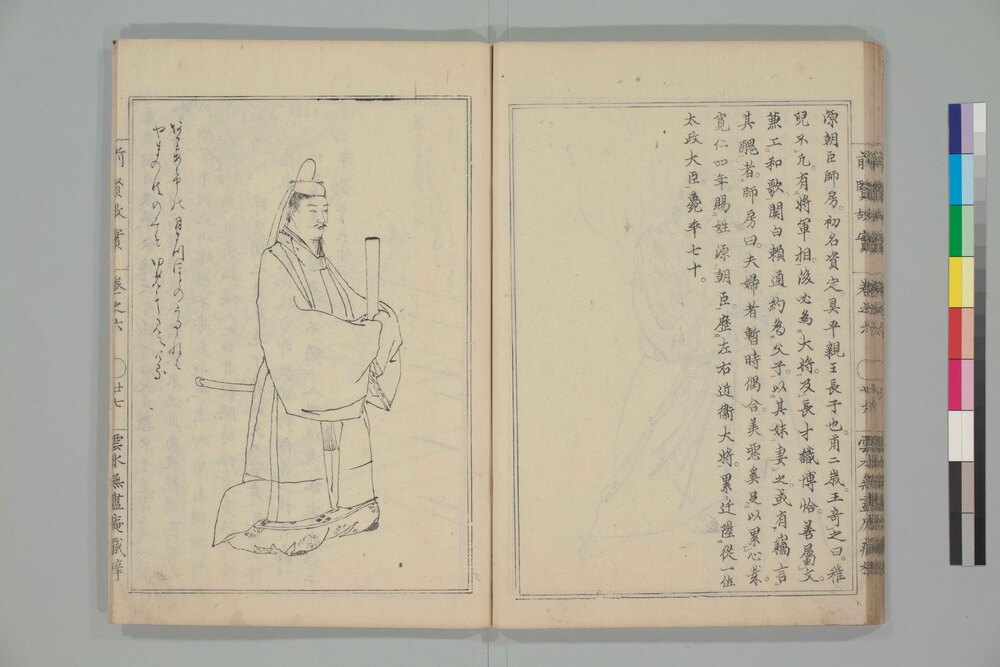 源朝臣師房。初名資定。具平親王長子也。甫二歳。王奇之曰。稚
兒不凡。有將軍相。後必為大將。及長才識博洽。善屬文。
兼工和歌。関白頼通約為父子。以其妹妻之。或有竊言
其醜者。師房曰。夫婦者暫時偶合。美惡奚足以累心哉。
寛仁四年。賜姓源朝臣。歴左右近衞大將。累迁陞從一位
太政大臣。薨年七十。
前賢故實
雲水無盡庵藏梓
前賢故實 卷之六 廿七 雲水無盡庵藏梓